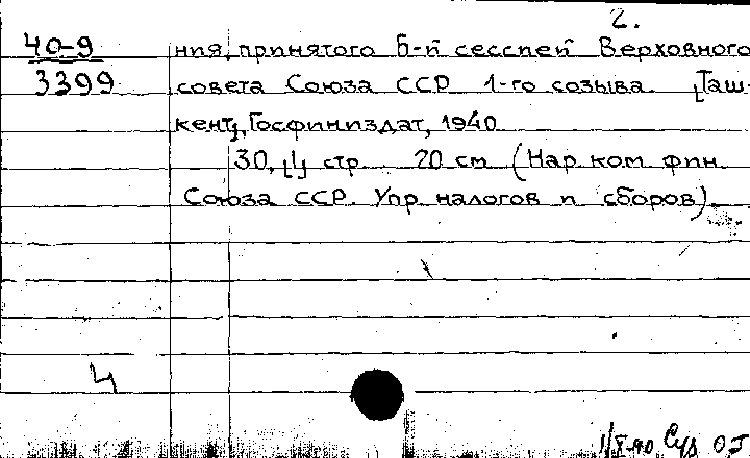 2.
40-9 ния, принятого 6-й сессией Верховного
3399 совета Союза ССР 1-го созыва. [Таш-
кент], Госфиниздат, 1940
30, [1] стр. 20 см (Нар. ком. фин.
Союза ССР. Упр. налогов и сборов).
4